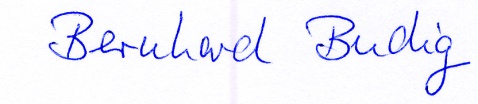 Bernhard Budig